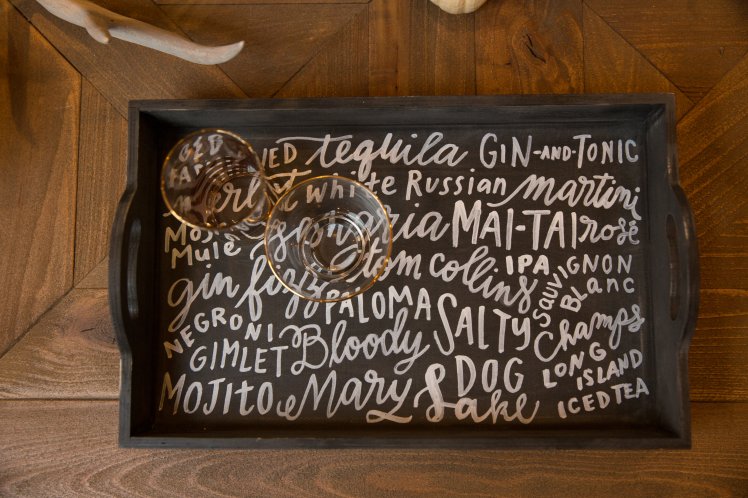 tequila GIN-AND-TONIC
merlot white Russian martini
MOSCOW MULE sangria MAI-TAI rosé
gin fizz tom collins IPA SAUVIGNON BLANC
NEGRONI PALOMA SALTY DOG Champs
GIMLET Bloody MARY LONG ISLAND ICED TEA
MOJITO Sake